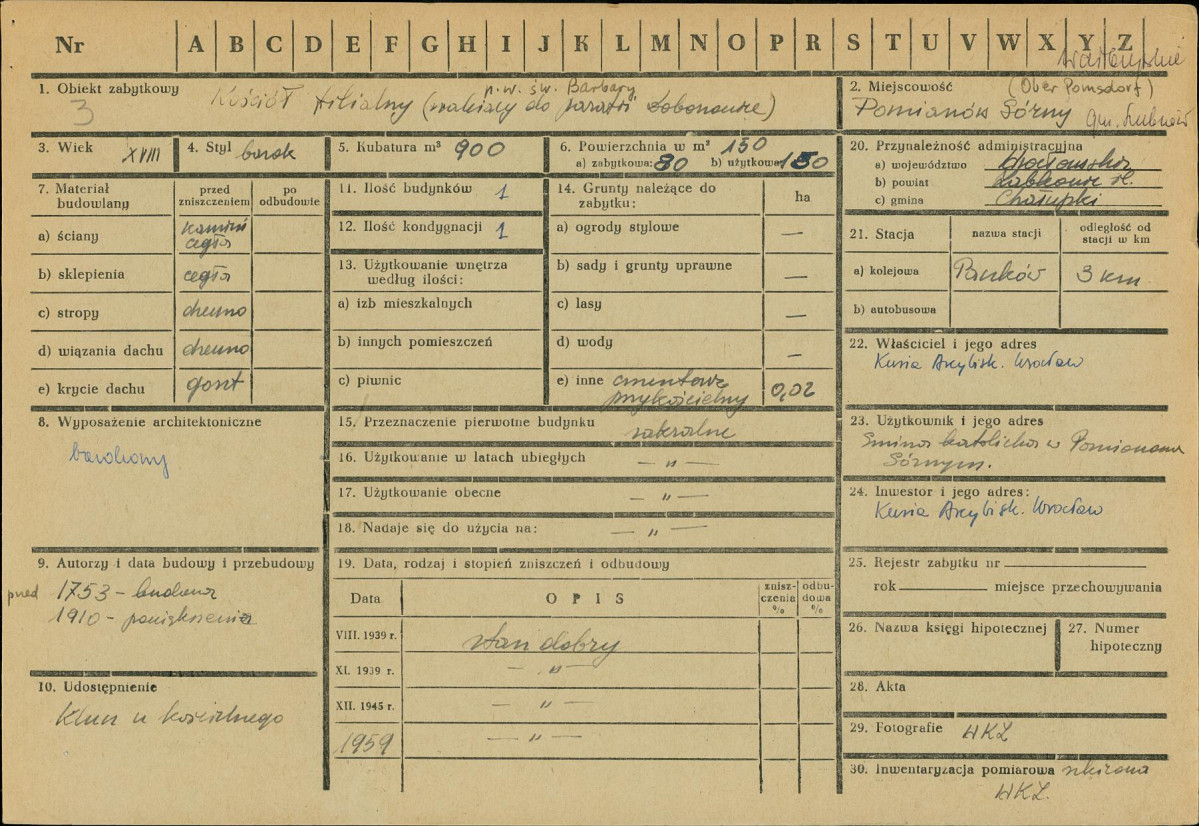 Nr A B C D E F G H I J K L M N O P R S T U V W X Y Z
Wałbrzyskie
1. Obiekt zabytkowy
p.w. św. Barbary
3 Kościół filialny (należący do parafii
2. Miejscowość (Ober Pomsdorf)
Pomianów Górny gm.
3. Wiek XVIII
4. Styl barok
5. Kubatura m³ 900
6. Powierzchnia w m² 150
a) zabytkowa: 80 b) użytkowa 150
7. Materiał budowlany
przed zniszczeniem
po odbudowie
a) ściany kamień
cegła
b) sklepienia cegła
c) stropy drewno
d) wiązania dachu drewno
e) krycie dachu gont
8. Wyposażenie architektoniczne
barokowy
9. Autorzy i data budowy i przebudowy
przed 1753 – budowa
1910 – powiększenie
10. Udostępnienie
Klucz u kościelnego
11. Ilość budynków 1
12. Ilość kondygnacji 1
13. Użytkowanie wnętrza
według ilości:
a) izb mieszkalnych
b) innych pomieszczeń
c) piwnic
14. Grunty należące do
zabytku:
ha
a) ogrody stylowe —
b) sady i grunty uprawne —
c) lasy —
d) wody —
e) inne cmentarz
przykościelny 0,02
15. Przeznaczenie pierwotne budynku
sakralne
16. Użytkowanie w latach ubiegłych — „ —
17. Użytkowanie obecne — „ —
18. Nadaje się do użycia na: — „ —
19. Data, rodzaj i stopień zniszczeń i odbudowy
Data
OPIS
znisz-
czenia
%
odbu-
dowa
%
VIII. 1939 r. stan dobry
XI. 1939 r. — „ —
XII. 1945 r. — „ —
1959 — „ —
20. Przynależność administracyjna
a) województwo Wrocławskie
b) powiat Ząbkowice Śl.
c) gmina Chałupki
21. Stacja
nazwa stacji
odległość od
stacji w km
a) kolejowa 3 km
b) autobusowa
22. Właściciel i jego adres
Kuria Arcybisk. Wrocław
23. Użytkownik i jego adres
Gmina katolicka w Pomianowie
Górnym.
24. Inwestor i jego adres:
Kuria Arcybisk. Wrocław
25. Rejestr zabytku nr
rok miejsce przechowywania
26. Nazwa księgi hipotecznej
27. Numer
hipoteczny
28. Akta
29. Fotografie WKZ
30. Inwentaryzacja pomiarowa szkicowa
WKZ.